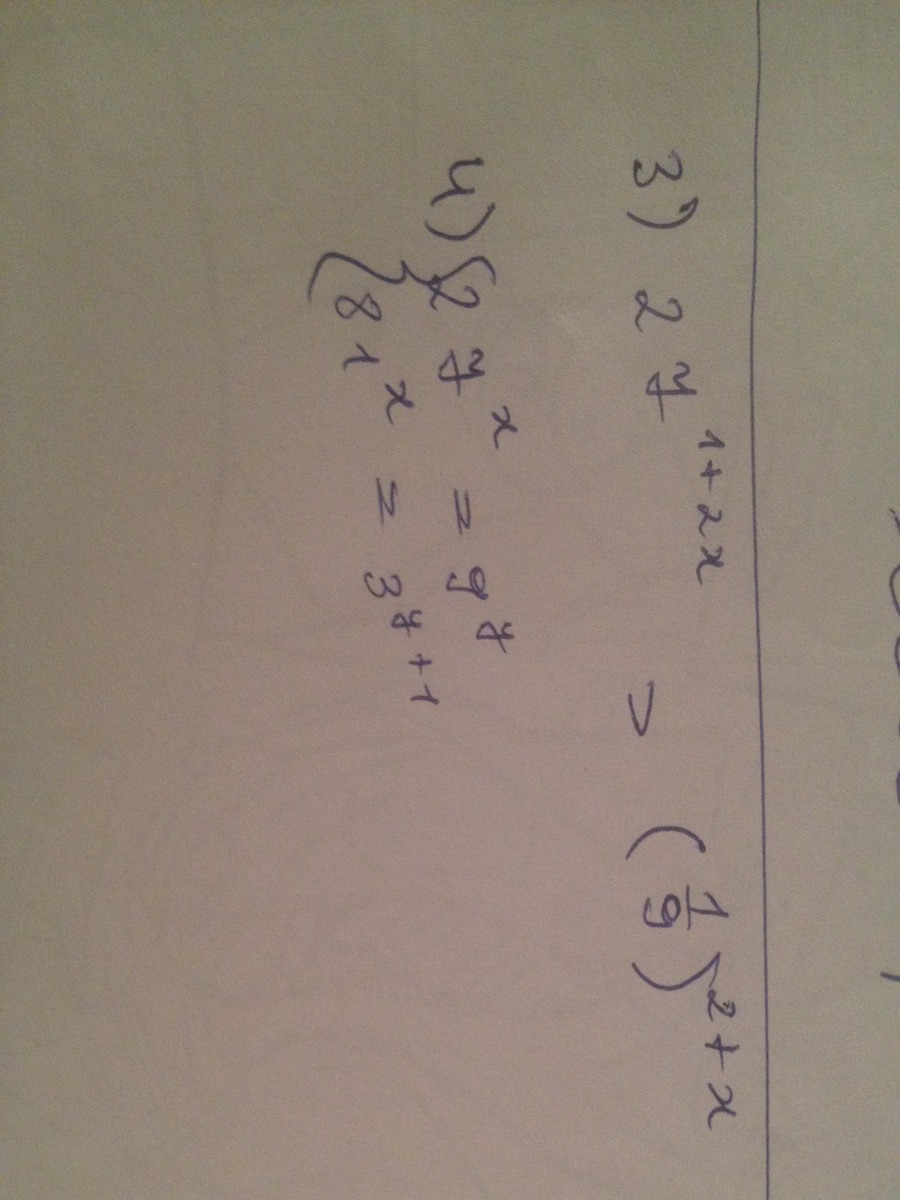 3) 27^{1+2x} > (1/9)^{2+x}
4) { 27^x = 9^y
{ 81^x = 3^{y+1}